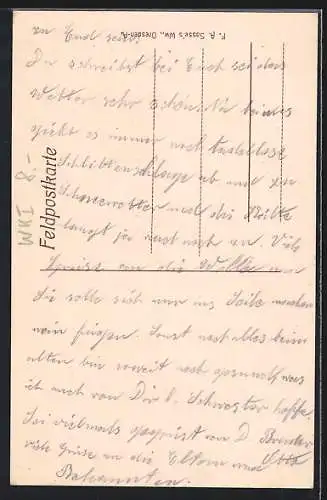 zu Euch sein.
Du schreibst bei Euch sei das
Wetter sehr schön. Na bei uns
giebt es immer noch tadellose
Schlittenschläge ab und zu
Schneewetter und die Kälte
langt ja auch noch zu. Viele
Grüsse an die
Sie solle sich nur
Sonst noch alles beim
alten bin soweit noch gesund was
ich auch von Dir l. Schwester hoffe.
Sei vielmals gegrüsst von D. Bruder
viele Grüsse an die Eltern und
Bekannten.
F. A. Sasse's Ww., Dresden-A.
Feldpostkarte
WKI 8,-